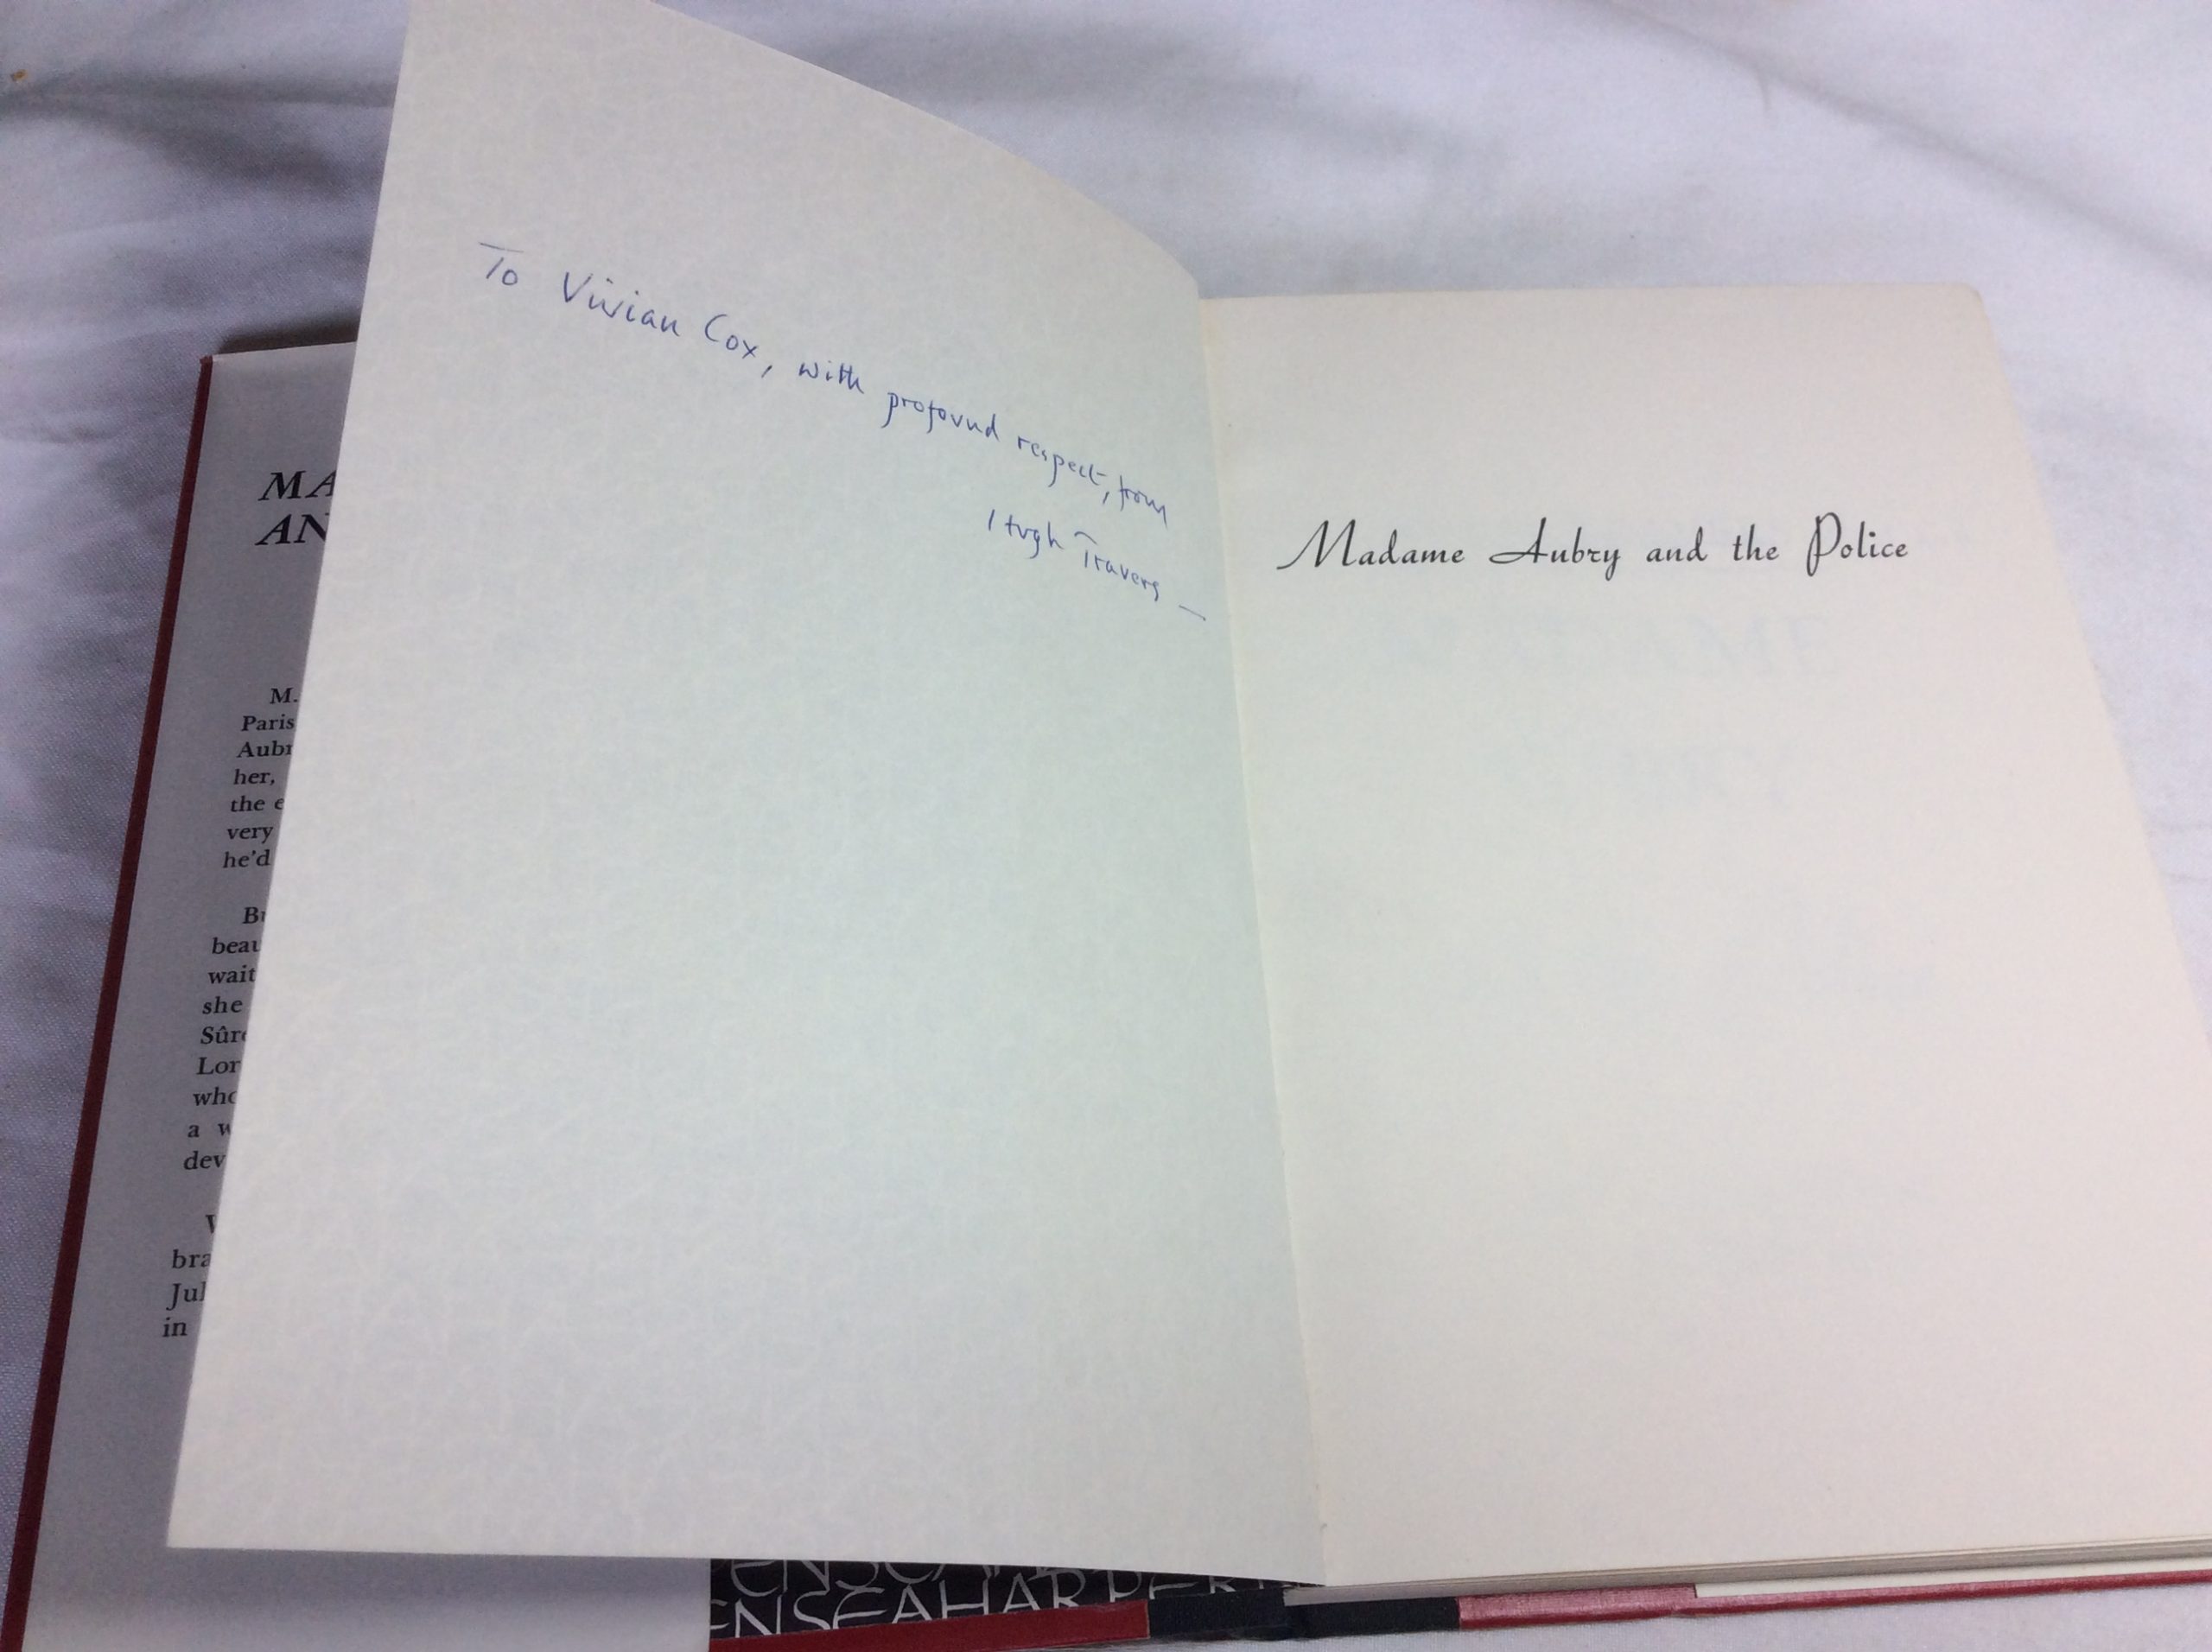 To Vivian Cox, with profound respect, from
Hugh Travers —
Madame Aubry and the Police
MA
AN
M.
Paris
Aub
her,
the e
very
he'd
B
beau
wait
she
Sûr
Lor
who
a w
dev
bra
Jul
in